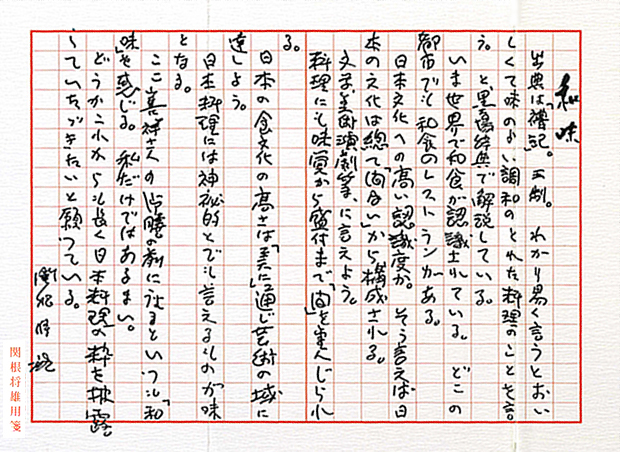 和味
出典は「禮記」。王制。わかり易く言うとおい
しくて味のよい調和のとれた料理のことを言
う。と、墨場辞典で解説している。
いま世界で和食が認識されている。どこの
都市でも和食のレストランがある。
日本文化への高い認識度か。そう言えば日
本の文化は総て「間合い」から構成される。
文学、美術、演劇等、に言えよう。
料理にも味覚から盛付まで「間」を重んじられ
る。
日本の食文化の高さは「美」に通じ芸術の域に
達しよう。
日本料理には神秘的とでも言えるものが味
となる。
ここ さんの の前に はるといつも「和
味」を感じる。私だけではあるまい。
どうかこれからも長く日本料理の粋を披露
していただきたいと願っている。
関根将雄用箋